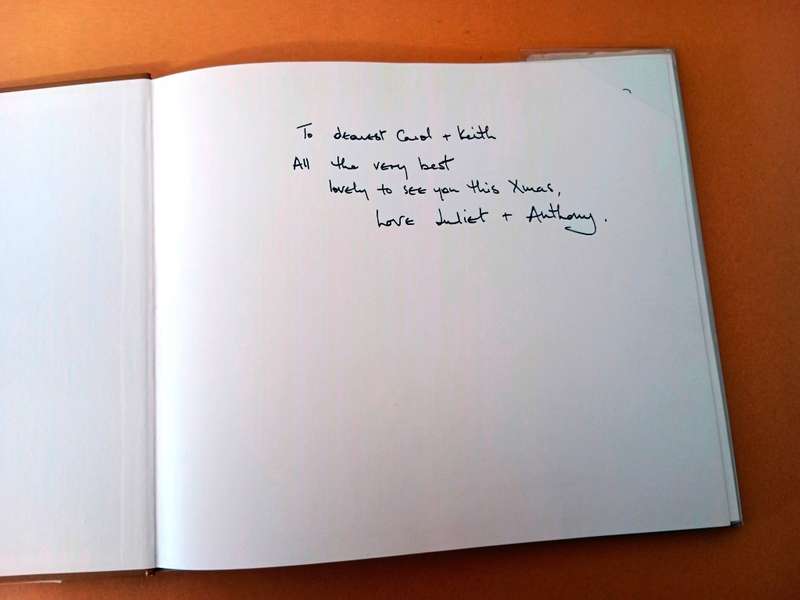 To dearest Carol + Keith
All the very best
lovely to see you this Xmas,
Love Juliet + Anthony.